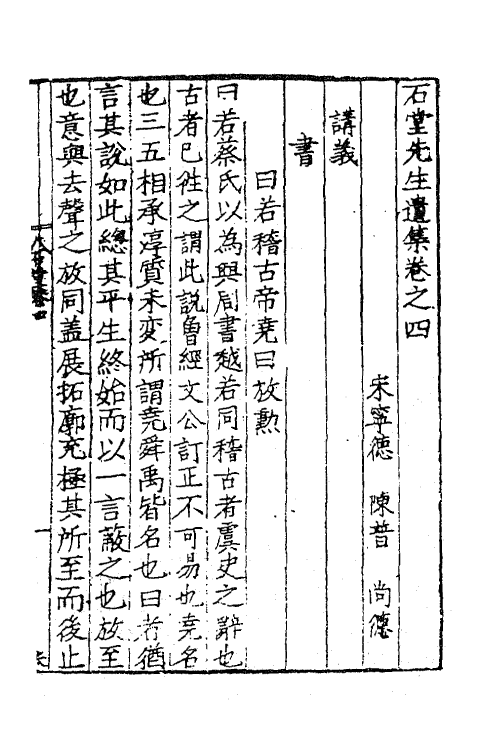 石堂先生遺集卷之四
宋寧德　陳普　尚德
講義
書
曰若稽古帝堯曰放勲
曰若蔡氏以為與周書越若同稽古者虞史之辭也
古者已徃之謂此說魯經文公訂正不可易也堯名
也三五相承淳質未變所謂堯舜禹皆名也曰者猶
言其說如此總其平生終始而以一言蔽之也放至
也意與去聲之放同盖展拓廓充極其所至而後止
一